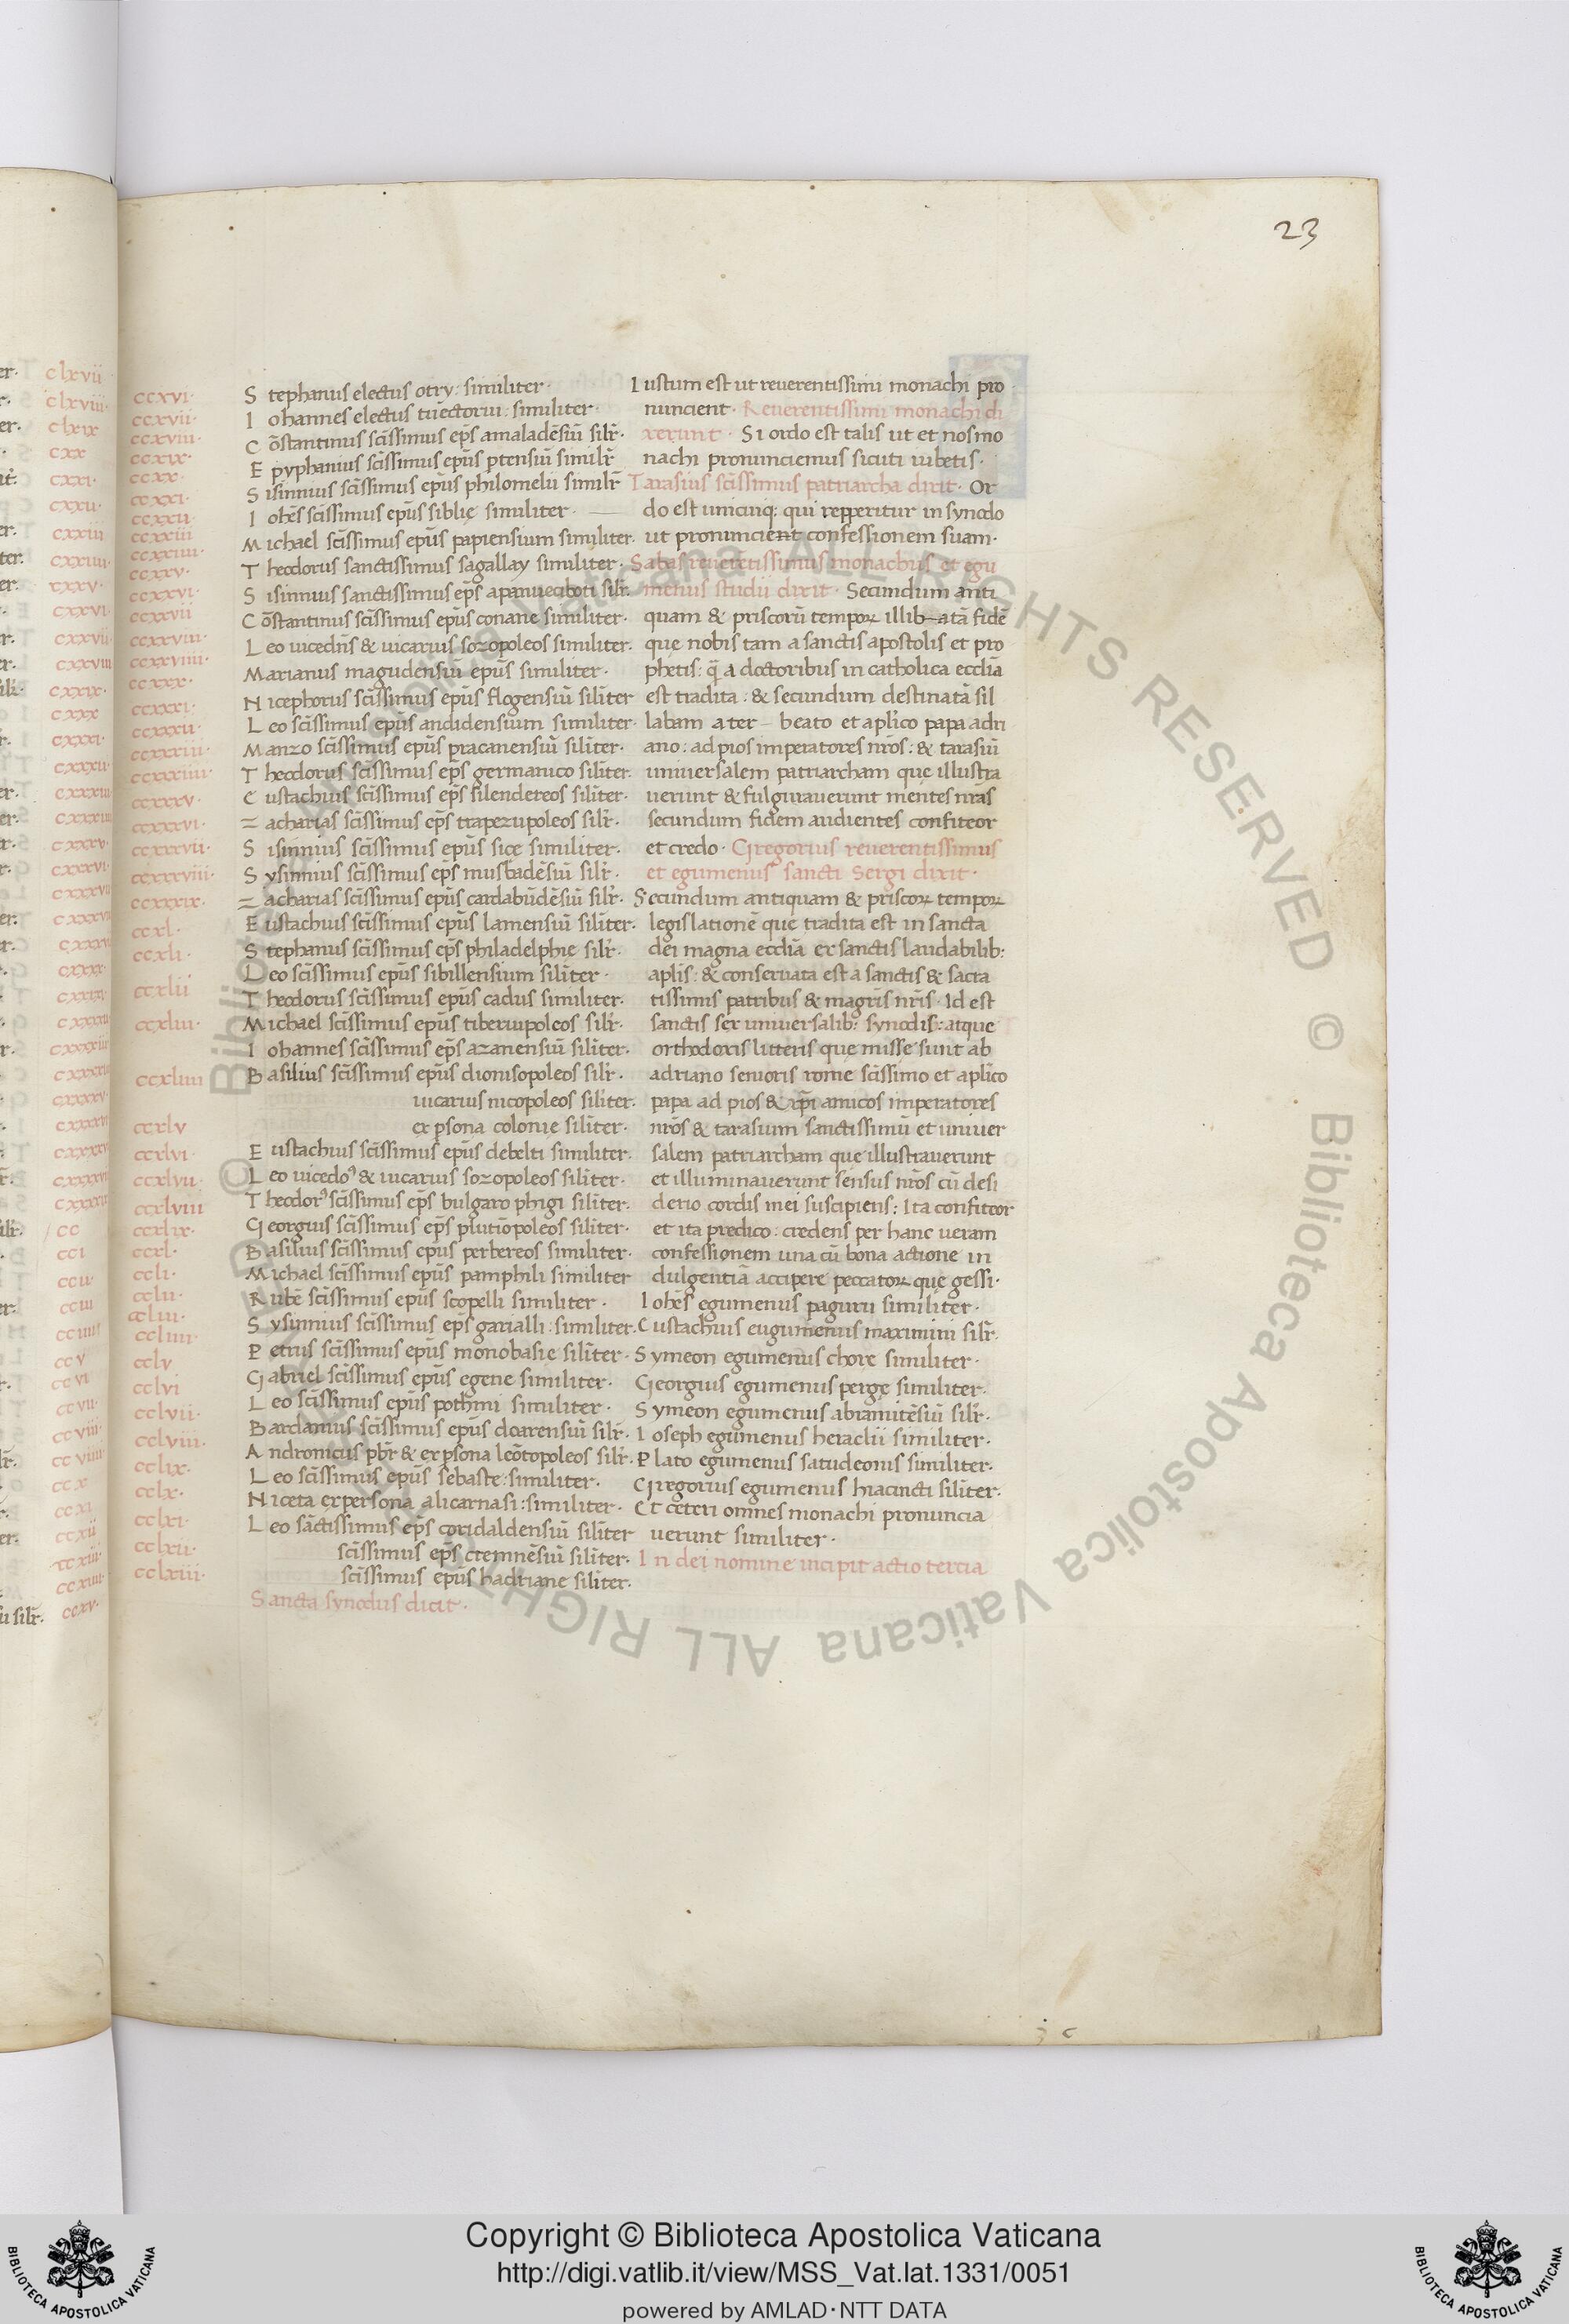 23
ccxvi· Stephanus electus otry: similiter·
ccxvii· Iohannes electus
ccxviii· Cõstantinus scĩssimus ep̃s amaladẽsiũ silr̃·
ccxix· Epyphanius scĩssimus epũs ptensiũ similr̃
ccxx· Sisinnius scĩssimus epũs philomelii similr̃
ccxxi· Iohẽs scĩssimus epũs siblię similiter·
ccxxii· Michael scĩssimus epũs papiensium similiter·
ccxxiii Theodorus sanctissimus sagallay similiter·
ccxxiiii· Sisinnius sanctissimus ep̃s silr̃·
ccxxv· Cõstantinus scĩssimus epũs conane similiter·
ccxxvi· Leo uicedñs & uicarius sozopoleos similiter·
ccxxvii Marianus magudensiũ epũs similiter·
ccxxviii· Nicephorus scĩssimus epũs flogensiũ silĩter
ccxxviiii· Leo scĩssimus epũs andidensium similiter·
ccxxx· Manzo scĩssimus epũs pracanensiũ silĩter·
ccxxxi· Theodorus scĩssimus ep̃s germanico silĩter·
ccxxxii· Eustachius scĩssimus ep̃s silendereos silĩter·
ccxxxiii· Zacharias scĩssimus ep̃s trapezupoleos silr̃·
ccxxxiiii· Sisinnius scĩssimus epũs sicę similiter·
ccxxxv· Sysinnius scĩssimus ep̃s mustadẽsiũ silr̃·
ccxxxvi· Zacharias scĩssimus epũs cardabũdẽsiũ silr̃·
ccxxxvii· Eustachius scĩssimus epũs lamensiũ silĩter·
ccxxxviii· Stephanus scĩssimus ep̃s philadelphie silr̃·
ccxxxix· Leo scĩssimus epũs sibillensium silĩter·
ccxl· Theodorus scĩssimus epũs cadus similiter·
ccxli· Michael scĩssimus epũs tiberiupoleos silr̃·
ccxlii Iohannes scĩssimus ep̃s azanensiũ silĩter·
ccxliii· Basilius scĩssimus epũs dionisopoleos silr̃·
ccxliiii uicarius nicopoleos silĩter·
ex psona colonie silĩter·
ccxlv Eustachius scĩssimus epũs debelti similiter·
ccxlvi· Leo uicedo⁹ & uicarius sozopoleos silĩter·
ccxlvii· Theodor⁹ scĩssimus ep̃s bulgaro phigi silĩter·
ccxlviii Georgius scĩssimus ep̃s plutiõpoleos silĩter·
ccxlix· Basilius scĩssimus epũs perbereos similiter·
ccxl· Michael scĩssimus epũs pamphili similiter
ccli· Rubẽ scĩssimus epũs scopelli similiter·
cclii· Sysinnius scĩssimus ep̃s garialli: similiter·
ccliii· Petrus scĩssimus epũs monobasie silĩter·
ccliiii· Gabriel scĩssimus epũs egene similiter·
cclv Leo scĩssimus epũs pothmi similiter·
cclvi Bardanius scĩssimus epũs doarensiũ silr̃·
cclvii· Andronicus pbr̃ & ex psona leõtopoleos silr̃·
cclviii· Leo scĩssimus epũs sebaste: similiter·
cclix· Niceta expersona alicarnasi: similiter·
cclx· Leo sãctissimus ep̃s coridaldensiũ silĩter
cclxi· scĩssimus ep̃s ctemnẽsiũ silĩter·
cclxii· scĩssimus epũs hadriane silĩter·
cclxiii· Sancta synodus dicit·
Iustum est ut reuerentissimi monachi pro
nuncient· Reuerentissimi monachi di
xerunt· Si ordo est talis ut et nos mo
nachi pronunciemus sicuti iubetis·
Tarasius scĩssimus patriarcha dixit· Or
do est unicuiq: qui repperitur in synodo
ut pronuncient confessionem suam·
Sabas reuerẽtissimus monachus et egu
menus studii dixit· Secundum anti
quam & priscorũ tempoꝝ illibatã fidẽ
que nobis tam a sanctis apostolis et pro
phetis: q̃ a doctoribus in catholica eccl̃ia
est tradita: & secundum destinatã sil
labam a ter beato et apl̃ico papa adri
ano: ad pios imperatores nr̃os: & tarasiũ
uniuersalem patriarcham que illustra
uerunt & fulgurauerunt mentes nr̃as
secundum fidem audientes confiteor
et credo· Gregorius reuerentissimus
et egumenus sancti Sergi dixit·
Secundum antiquam & priscoꝝ tempoꝝ
legislationẽ que tradita est in sancta
dei magna eccl̃ia ex sanctis laudabilib:
apl̃is: & conseruata est a sanctis & sacra
tissimis patribus & magr̃is nr̃is· Id est
sanctis sex uniuersalib: synodis: atque
orthodoxis litteris que misse sunt ab
adriano senioris rome scĩssimo et apl̃ico
papa ad pios & xp̃i amicos imperatores
nr̃os & tarasium sanctissimũ et uniuer
salem patriarcham que illustrauerunt
et illuminauerunt sensus nr̃os cũ desi
derio cordis mei suscipiens: Ita confiteor
et ita predico: credens per hanc ueram
confessionem una cũ bona actione in
dulgentiã accipere peccatoꝝ quę gessi·
Iohẽs egumenus pagurii similiter·
Eustachius eugumenus maximini silr̃·
Symeon egumenus chore similiter·
Georgius egumenus pergę similiter·
Symeon egumenus abramitẽsiũ silr̃·
Ioseph egumenus heraclii similiter·
Plato egumenus satudeonis similiter·
Gregorius egumenus hiacincti silĩter·
Et ceteri omnes monachi pronuncia
uerunt similiter·
In dei nomine incipit actio tertia
Copyright © Biblioteca Apostolica Vaticana
http://digi.vatlib.it/view/MSS_Vat.lat.1331/0051
powered by AMLAD·NTT DATA
BIBLIOTECA APOSTOLICA VATICANA
BIBLIOTECA APOSTOLICA VATICANA
© Biblioteca Apostolica Vaticana ALL RIGHTS RESERVED